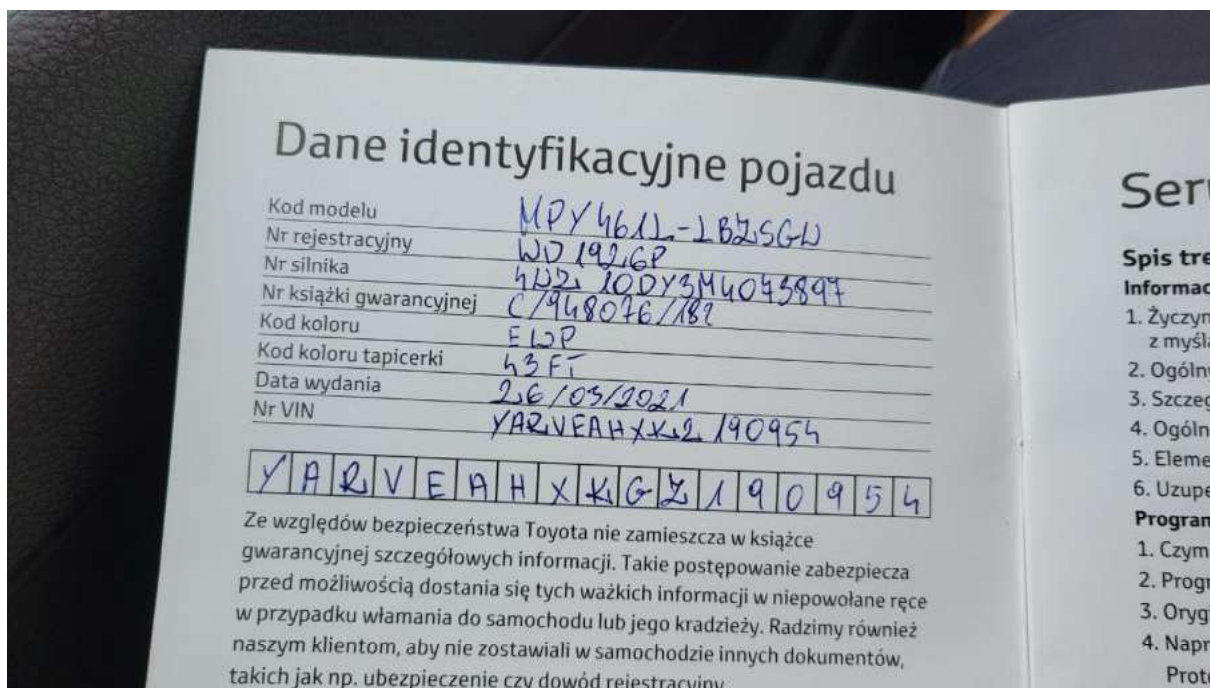 Dane identyfikacyjne pojazdu
Kod modelu MPY461L-LBZSGW
Nr rejestracyjny WD 1926P
Nr silnika
Nr książki gwarancyjnej C/948076/182
Kod koloru EWP
Kod koloru tapicerki 43FT
Data wydania 26/03/2021
Nr VIN
YARVEAHXKGZ190954
Ze względów bezpieczeństwa Toyota nie zamieszcza w książce
gwarancyjnej szczegółowych informacji. Takie postępowanie zabezpiecza
przed możliwością dostania się tych ważkich informacji w niepowołane ręce
w przypadku włamania do samochodu lub jego kradzieży. Radzimy również
naszym klientom, aby nie zostawiali w samochodzie innych dokumentów,
takich jak np. ubezpieczenie czy dowód rejestracyjny.
Ser
Spis tre
Informac
1. Życzyn
z myśl
2. Ogóln
3. Szczeg
4. Ogóln
5. Eleme
6. Uzupe
Program
1. Czym
2. Progr
3. Oryg
4. Napr
Proto